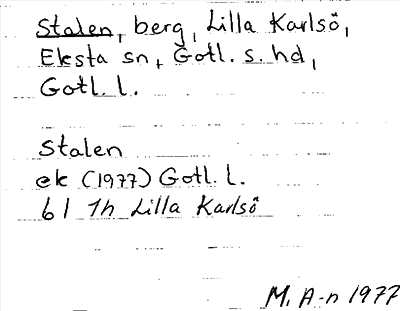 Stalen, berg, Lilla Karlsö,
Eksta sn, Gotl. s. hd,
Gotl. l.
Stalen
ek (1977) Gotl. l.
6 I 1h Lilla Karlsö
M. A-n 1977